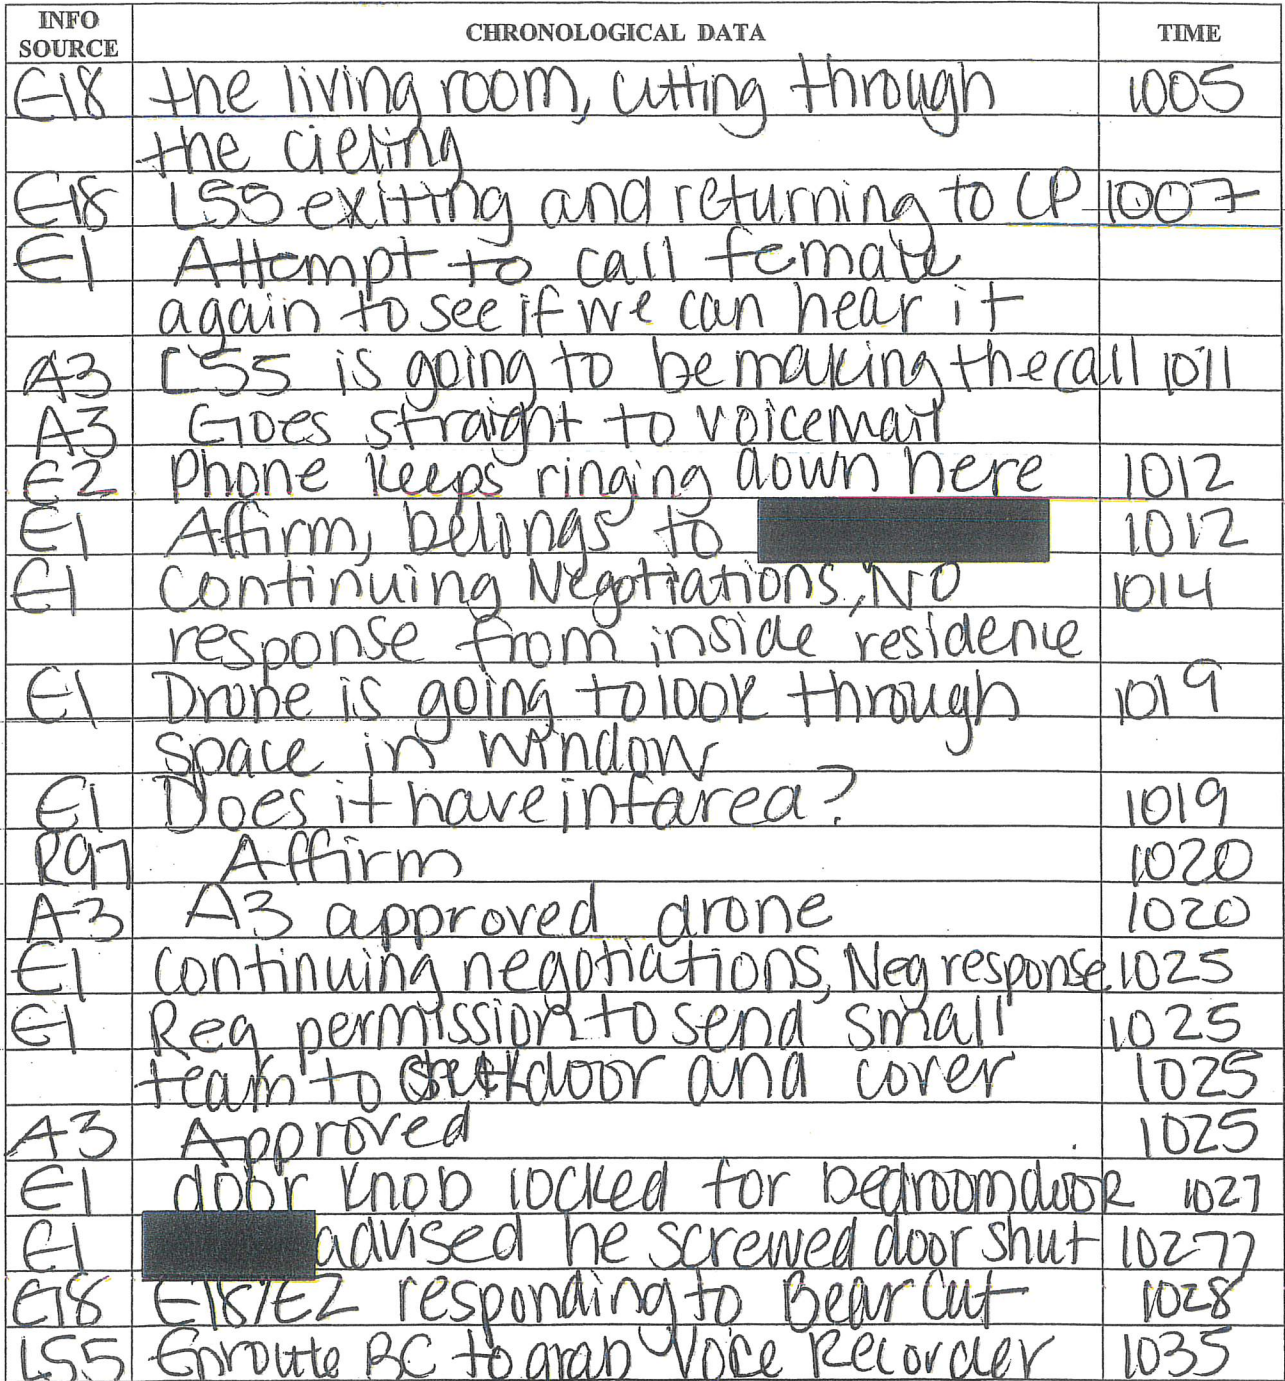 INFO SOURCE CHRONOLOGICAL DATA TIME
E18 the living room, cutting through 1005
the cieling
E18 LS5 exiting and returning to CP 1007
E1 Attempt to call female
again to see if we can hear it
A3 LS5 is going to be making the call 1011
A3 Goes straight to voicemail
E2 Phone keeps ringing down here 1012
E1 Affirm, belings to 1012
E1 Continuing Negotiations, NO 1014
response from inside residence
E1 Drone is going to look through 1019
space in window
E1 Does it have infarea? 1019
R97 Affirm 1020
A3 A3 approved drone 1020
E1 Continuing negotiations, Neg response 1025
E1 Req permission to send small 1025
team to door and cover 1025
A3 Approved 1025
E1 door knob locked for bedroom door 1027
E1 advised he screwed door shut 10277
E18 E18/E2 responding to Bear Cat 1028
LS5 Enroute BC to grab Voice Recorder 1035